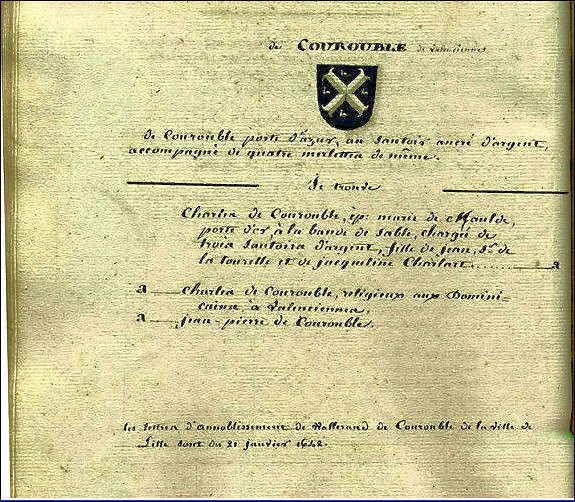 de COUROUBLE de Valenciennes
de Courouble porte d'azur, au sautoir ancré d'argent,
accompagné de quatre merlettes de même.
Je trouve
Charles de Courouble, ép: marie de Maulde,
porte d'or, à la bande de sable, chargée de
trois sautoirs d'argent, fille de jean, Sr. de
la tourelle et de jacqueline Charlart.......... a
a charles de Courouble, religieux aux Domini-
cains, à Valenciennes,
a jean-pierre de Courouble.
les lettres d'annoblissement de Wallerand de Courouble de la ville de
Lille sont du 21 janvier 1642.